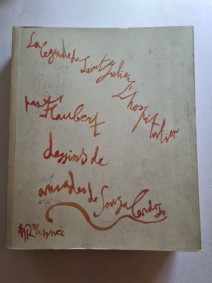 La Légende de
Saint Julien
L'hospitalier
par G. Flaubert
dessins de
amadeo de Souza Cardoso